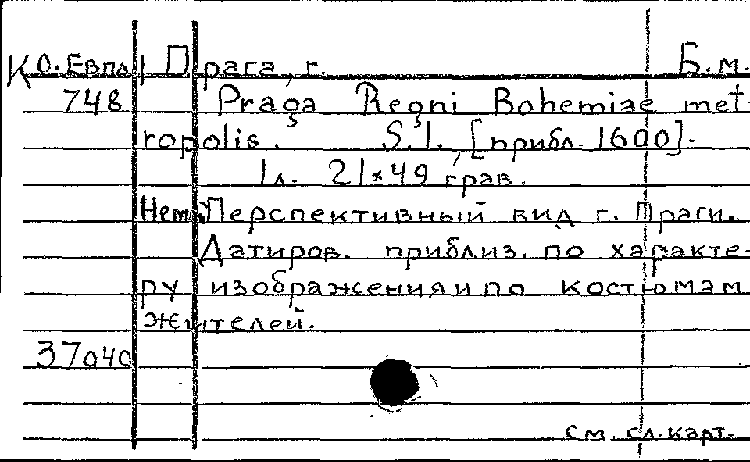 К О. Евпл Прага, г. Б. м.
748 Praga Regni Bohemiae met
ropolis. S. l. [прибл. 1600].
1 л. 21×49 грав.
Нем. Перспективный вид г. Праги.
Датиров. приблиз. по характе-
ру изображения и по костюмам
жителей.
37040
см. сл. карт.